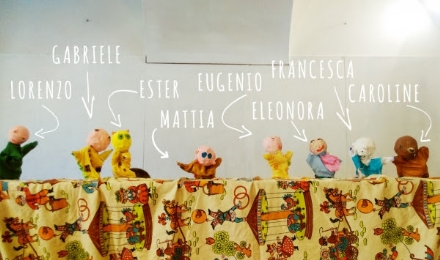 GABRIELE
LORENZO
ESTER
MATTIA
EUGENIO
FRANCESCA
ELEONORA
CAROLINE